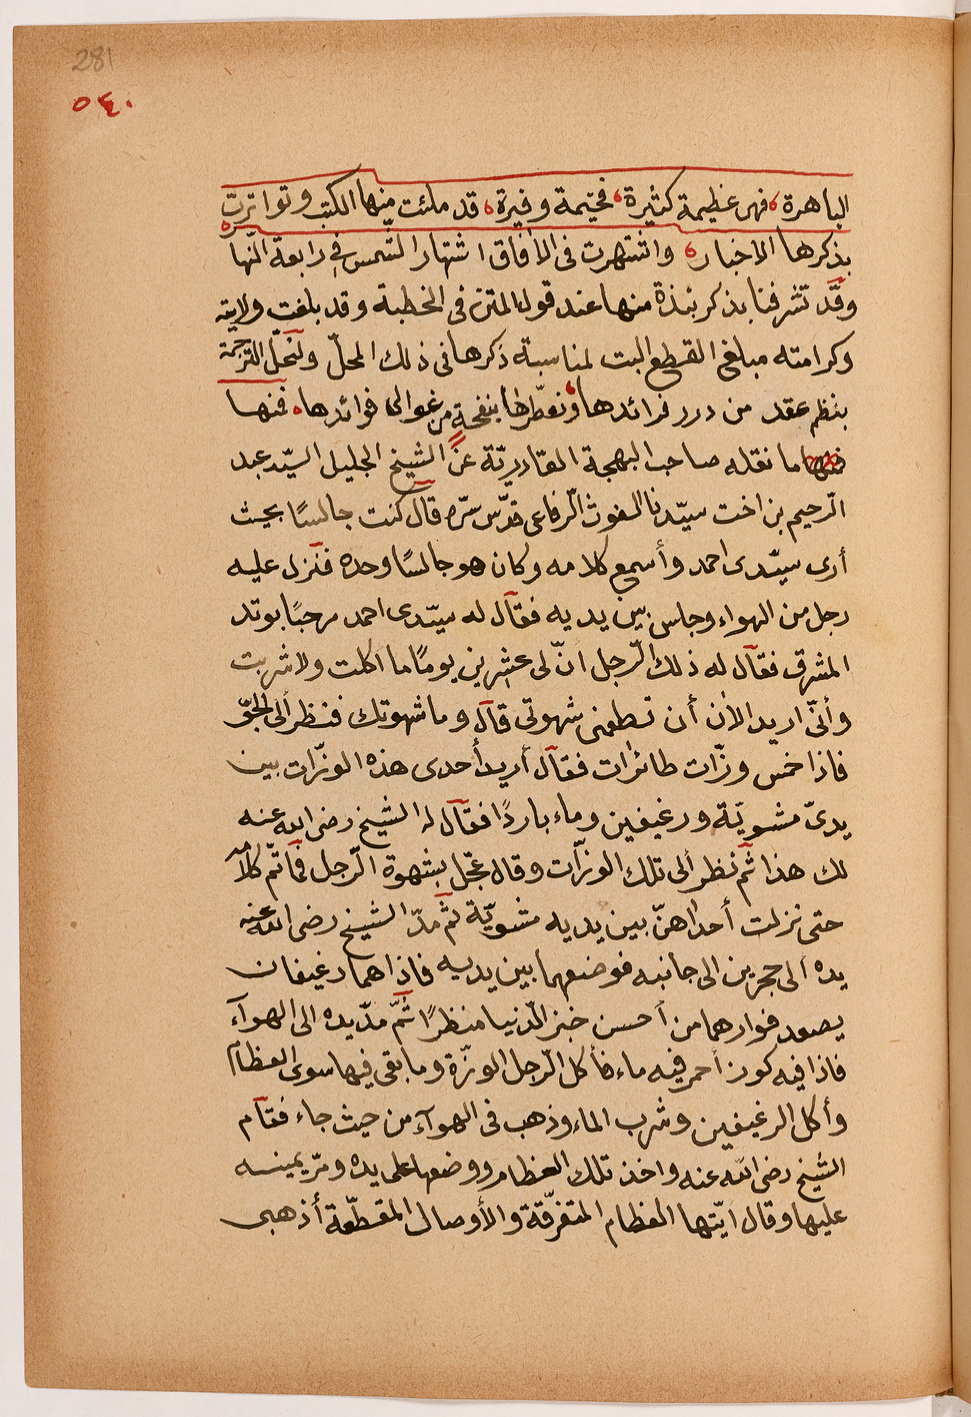 281
٥٤٠
الباهرة، فهى عظيمة كثيرة، فخيمة وفيرة، قد ملئت منها الكتب وتواترت
بذكرها الاخبار، واشتهرت فى الافاق اشتهار الشمس فى رابعة النها
وقد تشرفنا بذكر نبذة منها عند قول المتن فى الخطبة وقد بلغت ولايته
وكرامته مبلغ القطع البت لمناسبة ذكرها فى ذلك المحلّ ولنحلّ الترجمة
بنظم عقد من درر فرائدها، ونعطّرها بنفحة من غوالى فوائدها، فمنها
ما نقله صاحب البهجة القادريّة عن الشيخ الجليل السيّد عبد
الرّحيم بن اخت سيّدنا الغوث الرّفاعى قدّس سرّه قال كنت جالسًا بحيث
أرى سيّدى احمد وأسمع كلامه وكان هو جالسًا وحده فنزل عليه
رجل من الهواء وجلس بين يديه فقال له سيّدى احمد مرحبًا بوتد
المشرق فقال له ذلك الرّجل انّ لى عشرين يومًا ما اكلت ولا شربت
وأنّى اريد الان أن تطعمنى شهوتى قال وما شهوتك فنظر ألى الجوّ
فاذا خمس وزّات طائرات فقال أريد أحدى هذه الوزّات بين
يدىّ مشويّة ورغيفين وماء باردًا فقال له الشيخ رضى الله عنه
لك هذا ثمّ نظر ألى تلك الوزّات وقال عجّل بشهوة الرّجل فما تمّ كلامه
حتى نزلت أحداهنّ بين يديه مشويّة ثمّ مدّ الشيخ رضى الله عنه
يده ألى حجرين الى جانبه فوضعهما بين يديه فاذا هما رغيفان
يصعد فوارهما من أحسن خبز الدّنيا منظرًا ثمّ مدّ يده الى الهوآء
فاذا فيه كوز أحمر فيه ماء فأكل الرّجل الوزّة وما بقى فيها سوى العظام
وأكل الرغيفين وشرب الماء وذهب فى الهوآء من حيث جاء فقام
الشيخ رضى الله عنه واخذ تلك العظام ووضعها على يده ومرّ يمينه
عليها وقال ايّتها العظام المتفرّقة والأوصال المقطّعة أذهبى